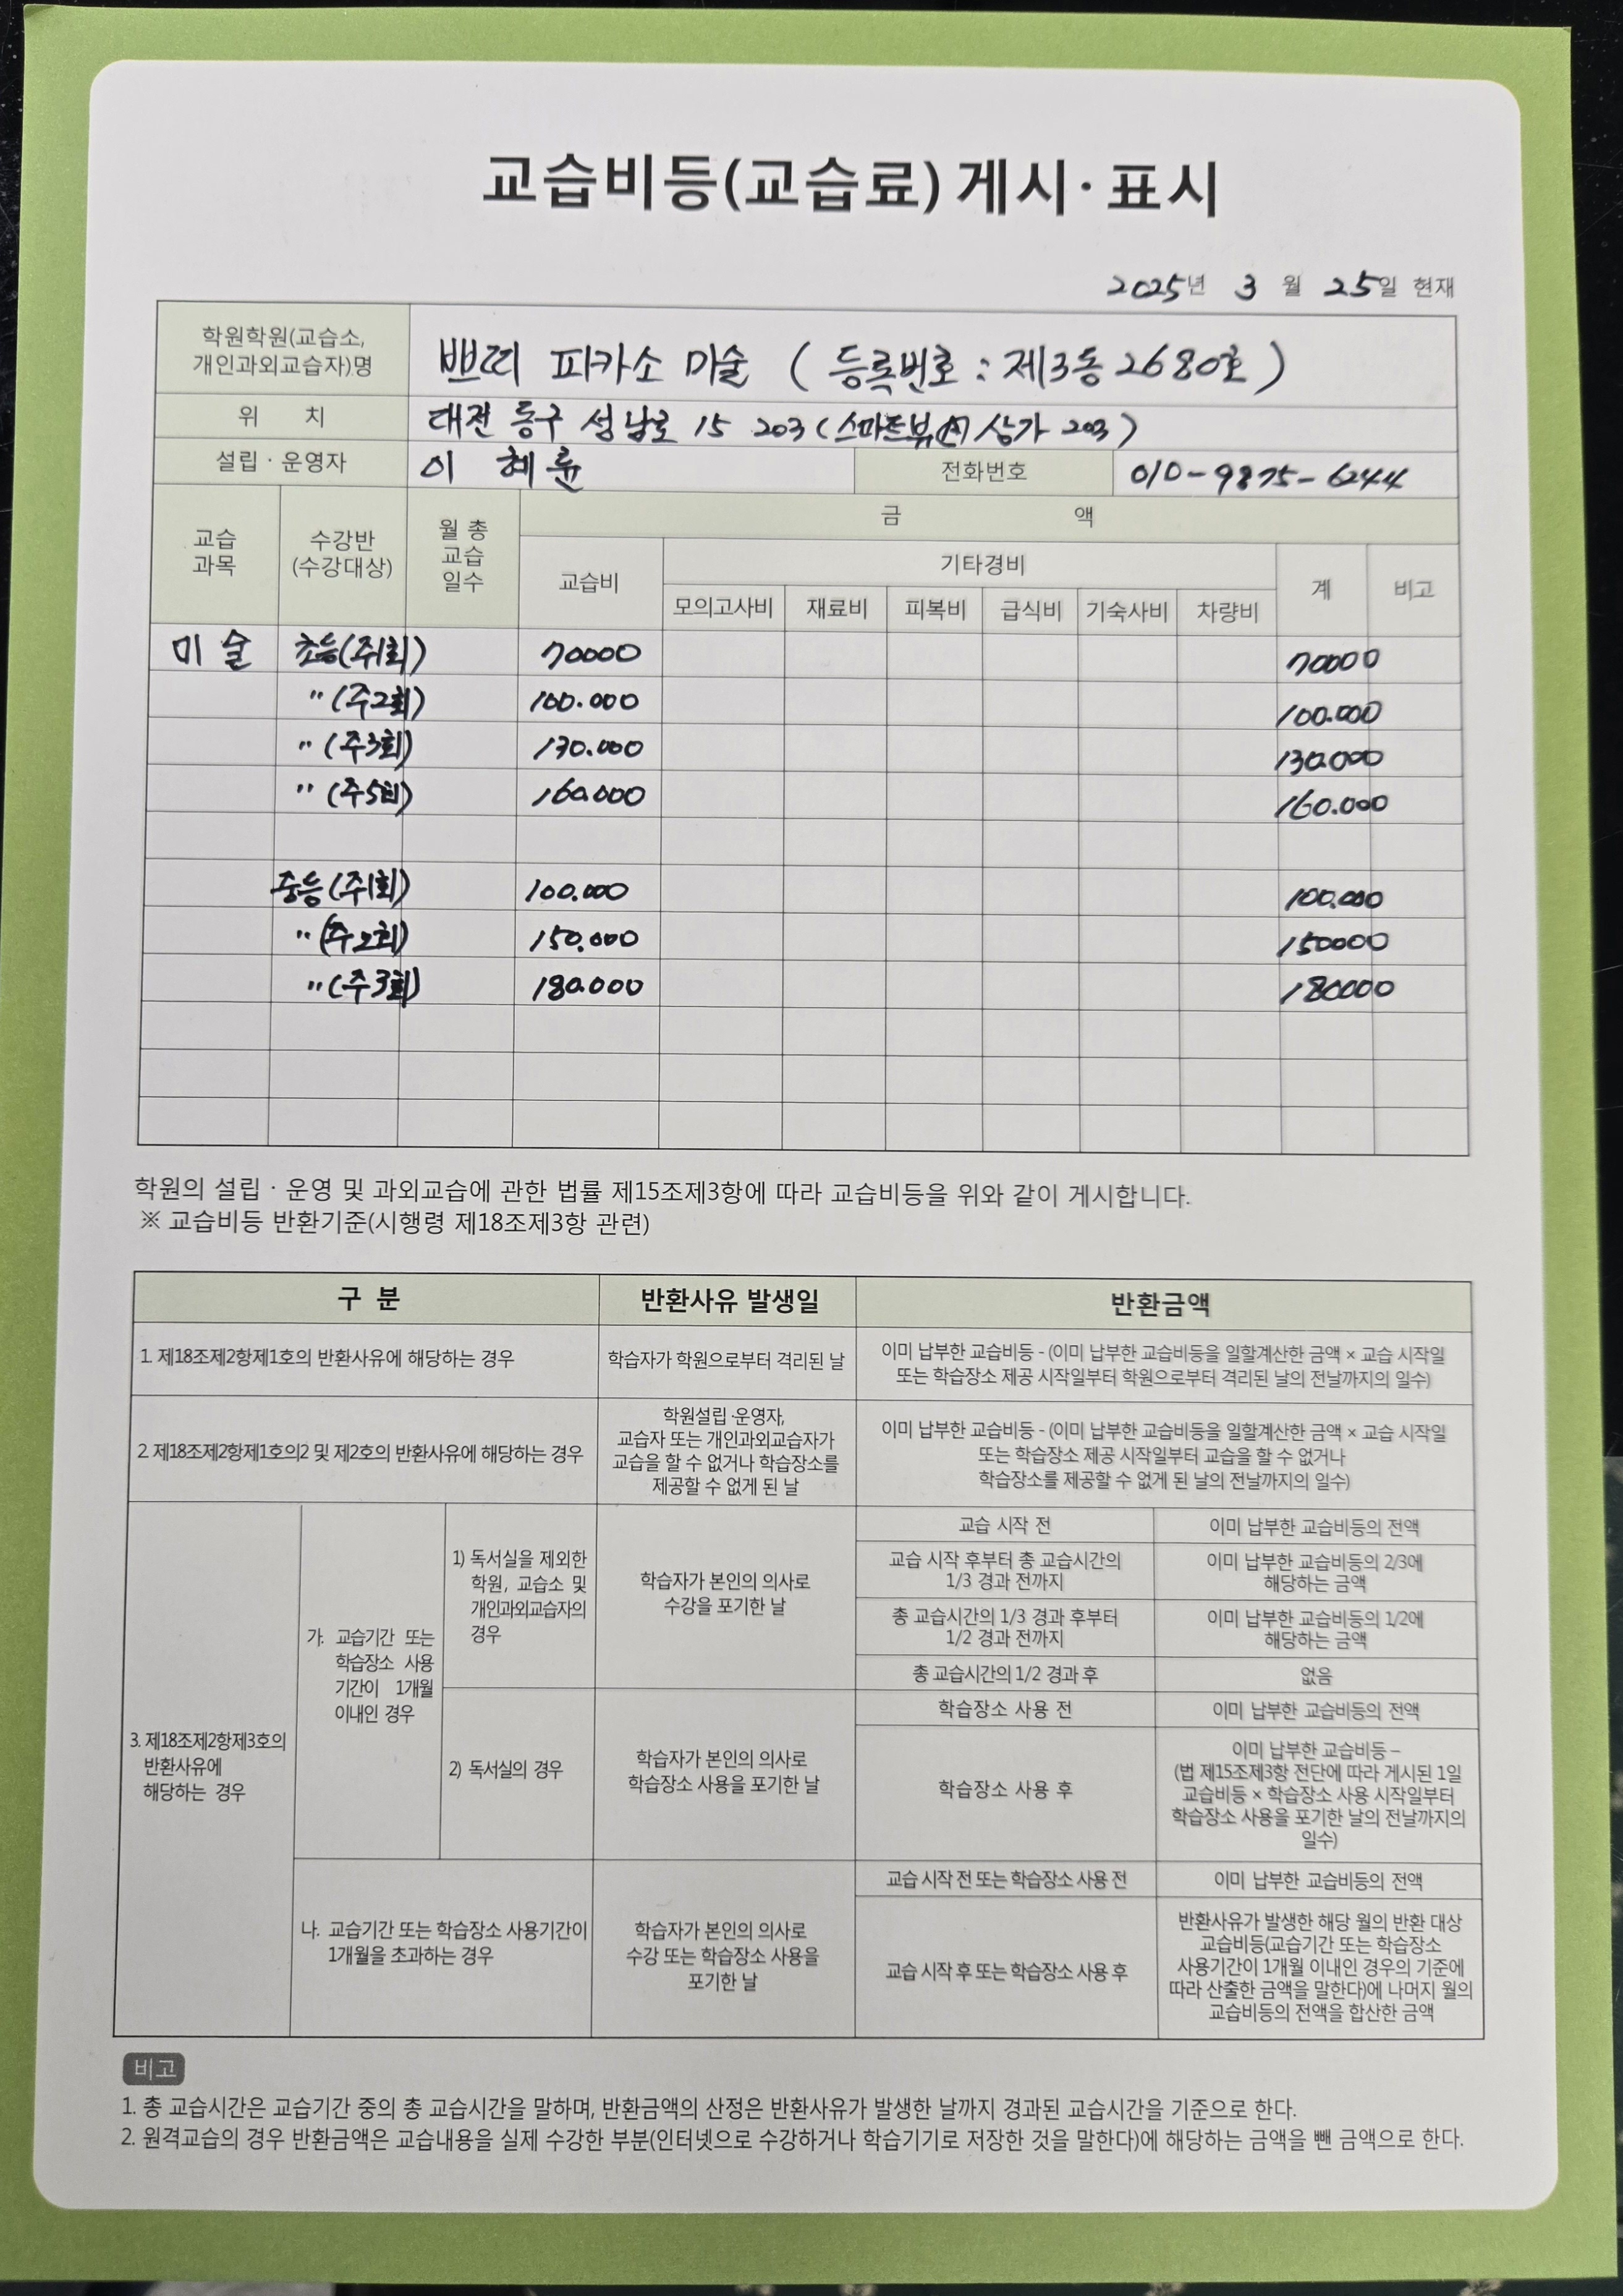 교습비등(교습료) 게시·표시
2025년 3월 25일 현재
학원학원(교습소,
개인과외교습자)명
쁘띠 피카소 미술 (등록번호 : 제3동2680호)
위 치
대전 동구 성남로 15 203 (스마트뷰 상가 203)
설립·운영자
이 혜륜
전화번호
010-9875-6244
교습
과목
수강반
(수강대상)
월 총
교습
일수
금 액
교습비
기타경비
모의고사비 재료비 피복비 급식비 기숙사비 차량비
계
비고
미술 초등(주1회) 70000 70000
〃(주2회) 100.000 100.000
〃(주3회) 130.000 130.000
〃(주5회) 160.000 160.000
중등(주1회) 100.000 100.000
〃(주2회) 150.000 150000
〃(주3회) 180.000 180000
학원의 설립·운영 및 과외교습에 관한 법률 제15조제3항에 따라 교습비등을 위와 같이 게시합니다.
※ 교습비등 반환기준(시행령 제18조제3항 관련)
구 분 반환사유 발생일 반환금액
1. 제18조제2항제1호의 반환사유에 해당하는 경우
학습자가 학원으로부터 격리된 날
이미 납부한 교습비등 - (이미 납부한 교습비등을 일할계산한 금액 × 교습 시작일
또는 학습장소 제공 시작일부터 학원으로부터 격리된 날의 전날까지의 일수)
2. 제18조제2항제1호의2 및 제2호의 반환사유에 해당하는 경우
학원설립·운영자,
교습자 또는 개인과외교습자가
교습을 할 수 없거나 학습장소를
제공할 수 없게 된 날
이미 납부한 교습비등 - (이미 납부한 교습비등을 일할계산한 금액 × 교습 시작일
또는 학습장소 제공 시작일부터 교습을 할 수 없거나
학습장소를 제공할 수 없게 된 날의 전날까지의 일수)
3. 제18조제2항제3호의
반환사유에
해당하는 경우
가. 교습기간 또는
학습장소 사용
기간이 1개월
이내인 경우
1) 독서실을 제외한
학원, 교습소 및
개인과외교습자의
경우
학습자가 본인의 의사로
수강을 포기한 날
교습 시작 전
이미 납부한 교습비등의 전액
교습 시작 후부터 총 교습시간의
1/3 경과 전까지
이미 납부한 교습비등의 2/3에
해당하는 금액
총 교습시간의 1/3 경과 후부터
1/2 경과 전까지
이미 납부한 교습비등의 1/2에
해당하는 금액
총 교습시간의 1/2 경과 후
없음
2) 독서실의 경우
학습자가 본인의 의사로
학습장소 사용을 포기한 날
학습장소 사용 전
이미 납부한 교습비등의 전액
학습장소 사용 후
이미 납부한 교습비등 –
(법 제15조제3항 전단에 따라 게시된 1일
교습비등 × 학습장소 사용 시작일부터
학습장소 사용을 포기한 날의 전날까지의
일수)
나. 교습기간 또는 학습장소 사용기간이
1개월을 초과하는 경우
학습자가 본인의 의사로
수강 또는 학습장소 사용을
포기한 날
교습 시작 전 또는 학습장소 사용 전
이미 납부한 교습비등의 전액
교습 시작 후 또는 학습장소 사용 후
반환사유가 발생한 해당 월의 반환 대상
교습비등(교습기간 또는 학습장소
사용기간이 1개월 이내인 경우의 기준에
따라 산출한 금액을 말한다)에 나머지 월의
교습비등의 전액을 합산한 금액
비고
1. 총 교습시간은 교습기간 중의 총 교습시간을 말하며, 반환금액의 산정은 반환사유가 발생한 날까지 경과된 교습시간을 기준으로 한다.
2. 원격교습의 경우 반환금액은 교습내용을 실제 수강한 부분(인터넷으로 수강하거나 학습기기로 저장한 것을 말한다)에 해당하는 금액을 뺀 금액으로 한다.